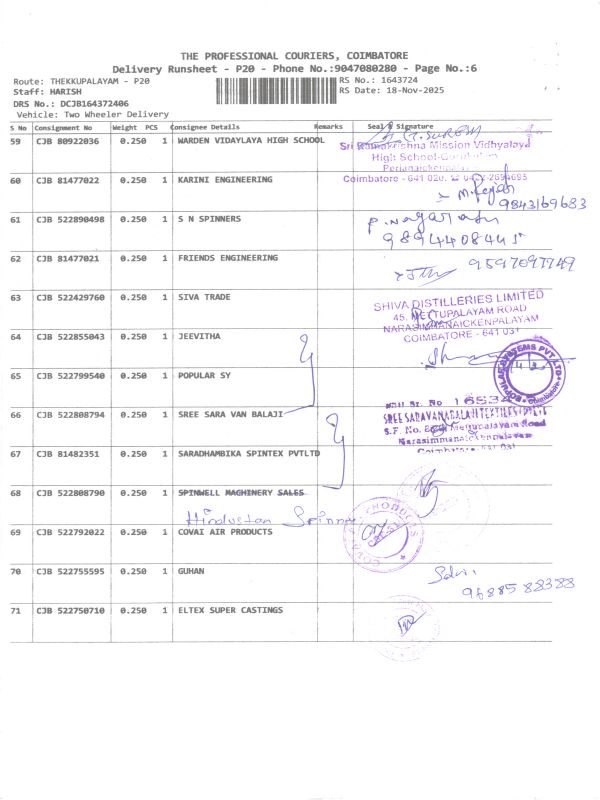 THE PROFESSIONAL COURIERS, COIMBATORE
Delivery Runsheet - P20 - Phone No.:9047080280 - Page No.:6
Route: THEKKUPALAYAM - P20 RS No.: 1643724
Staff: HARISH RS Date: 18-Nov-2025
DRS No.: DCJB164372406
Vehicle: Two Wheeler Delivery
S No Consignment No Weight PCS Consignee Details Remarks Seal & Signature
59 CJB 80922036 0.250 1 WARDEN VIDAYLAYA HIGH SCHOOL
Sri Ramakrishna Mission Vidhyalaya
High School
Coimbatore - 641 020.
60 CJB 81477022 0.250 1 KARINI ENGINEERING
9843169683
61 CJB 522890498 0.250 1 S N SPINNERS
P. Nagarajan
9894408445
62 CJB 81477021 0.250 1 FRIENDS ENGINEERING 9597097749
63 CJB 522429760 0.250 1 SIVA TRADE
SHIVA DISTILLERIES LIMITED
45, METTUPALAYAM ROAD
NARASIMMANAICKENPALAYAM
COIMBATORE - 641 031
64 CJB 522855043 0.250 1 JEEVITHA
65 CJB 522799540 0.250 1 POPULAR SY
POPULAR SYSTEMS PVT. LTD.
66 CJB 522808794 0.250 1 SREE SARA VAN BALAJI
Mettupalayam Road
Narasimmanaickenpalayam
67 CJB 81482351 0.250 1 SARADHAMBIKA SPINTEX PVTLTD
68 CJB 522808790 0.250 1 SPINWELL MACHINERY SALES
Hindustan
69 CJB 522792022 0.250 1 COVAI AIR PRODUCTS
70 CJB 522755595 0.250 1 GUHAN
9688588388
71 CJB 522750710 0.250 1 ELTEX SUPER CASTINGS